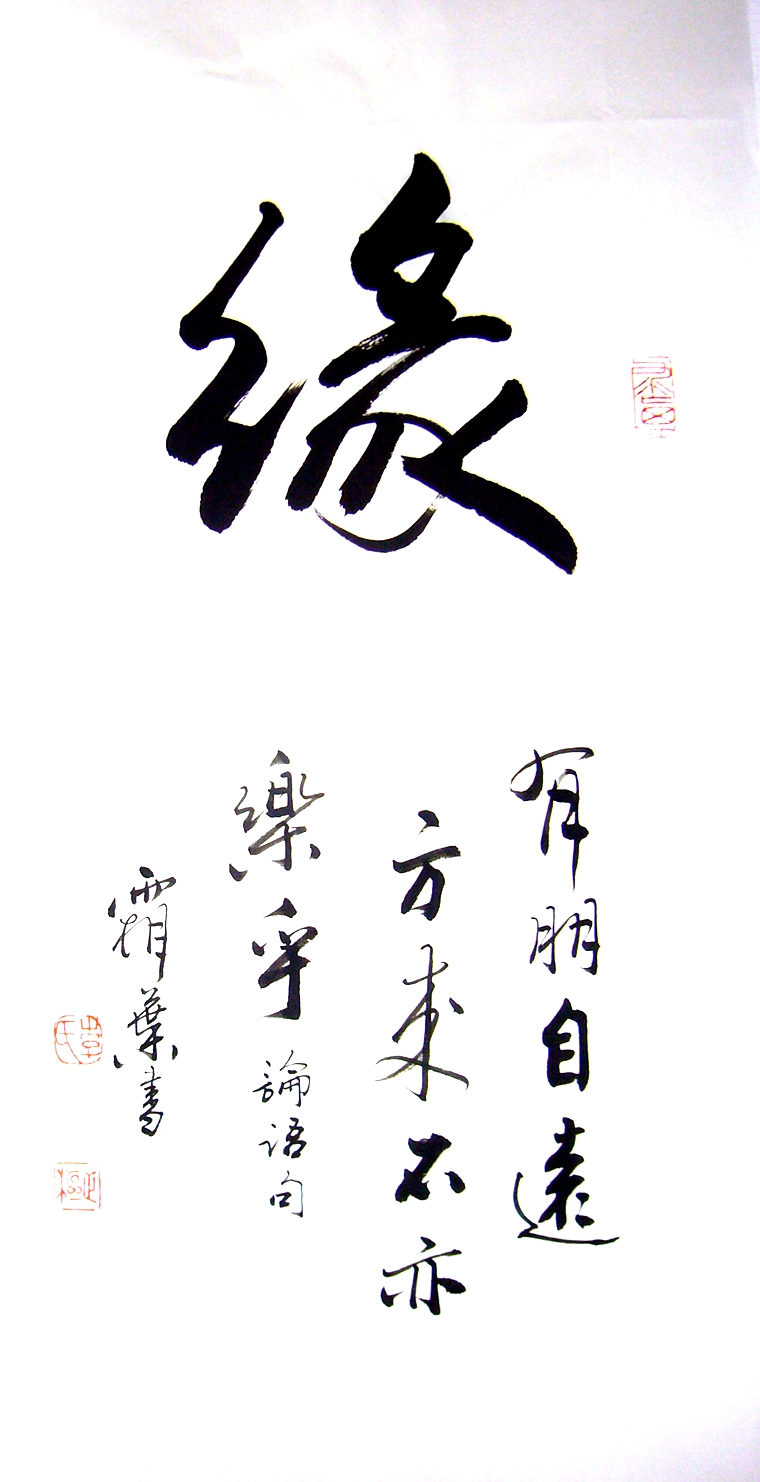 緣
有朋自遠
方來不亦
樂乎 論语句
霜葉書